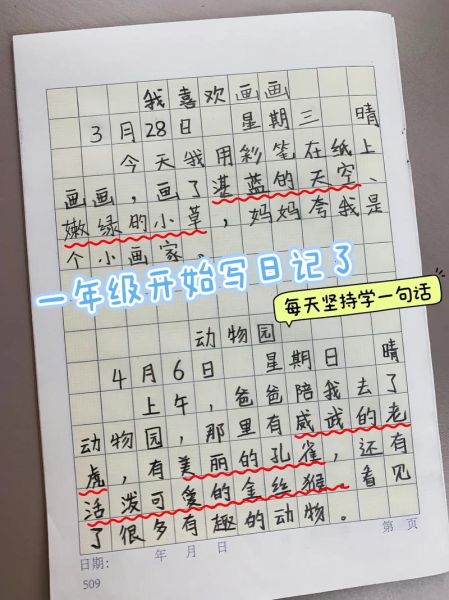 我喜欢画画
3月28日 星期三 晴
今天我用彩笔在纸上
画画，画了湛蓝的天空、
嫩绿的小草，妈妈夸我是
个小画家。
一年级开始写日记了
每天坚持学一句话
动物园
4月6日 星期日 晴
上午，爸爸陪我去了
动物园，那里有威武的老
虎，有美丽的孔雀，还有
活泼可爱的金丝猴。看见
了很多有趣的动物。
日期： 年 月 日 第 页
509